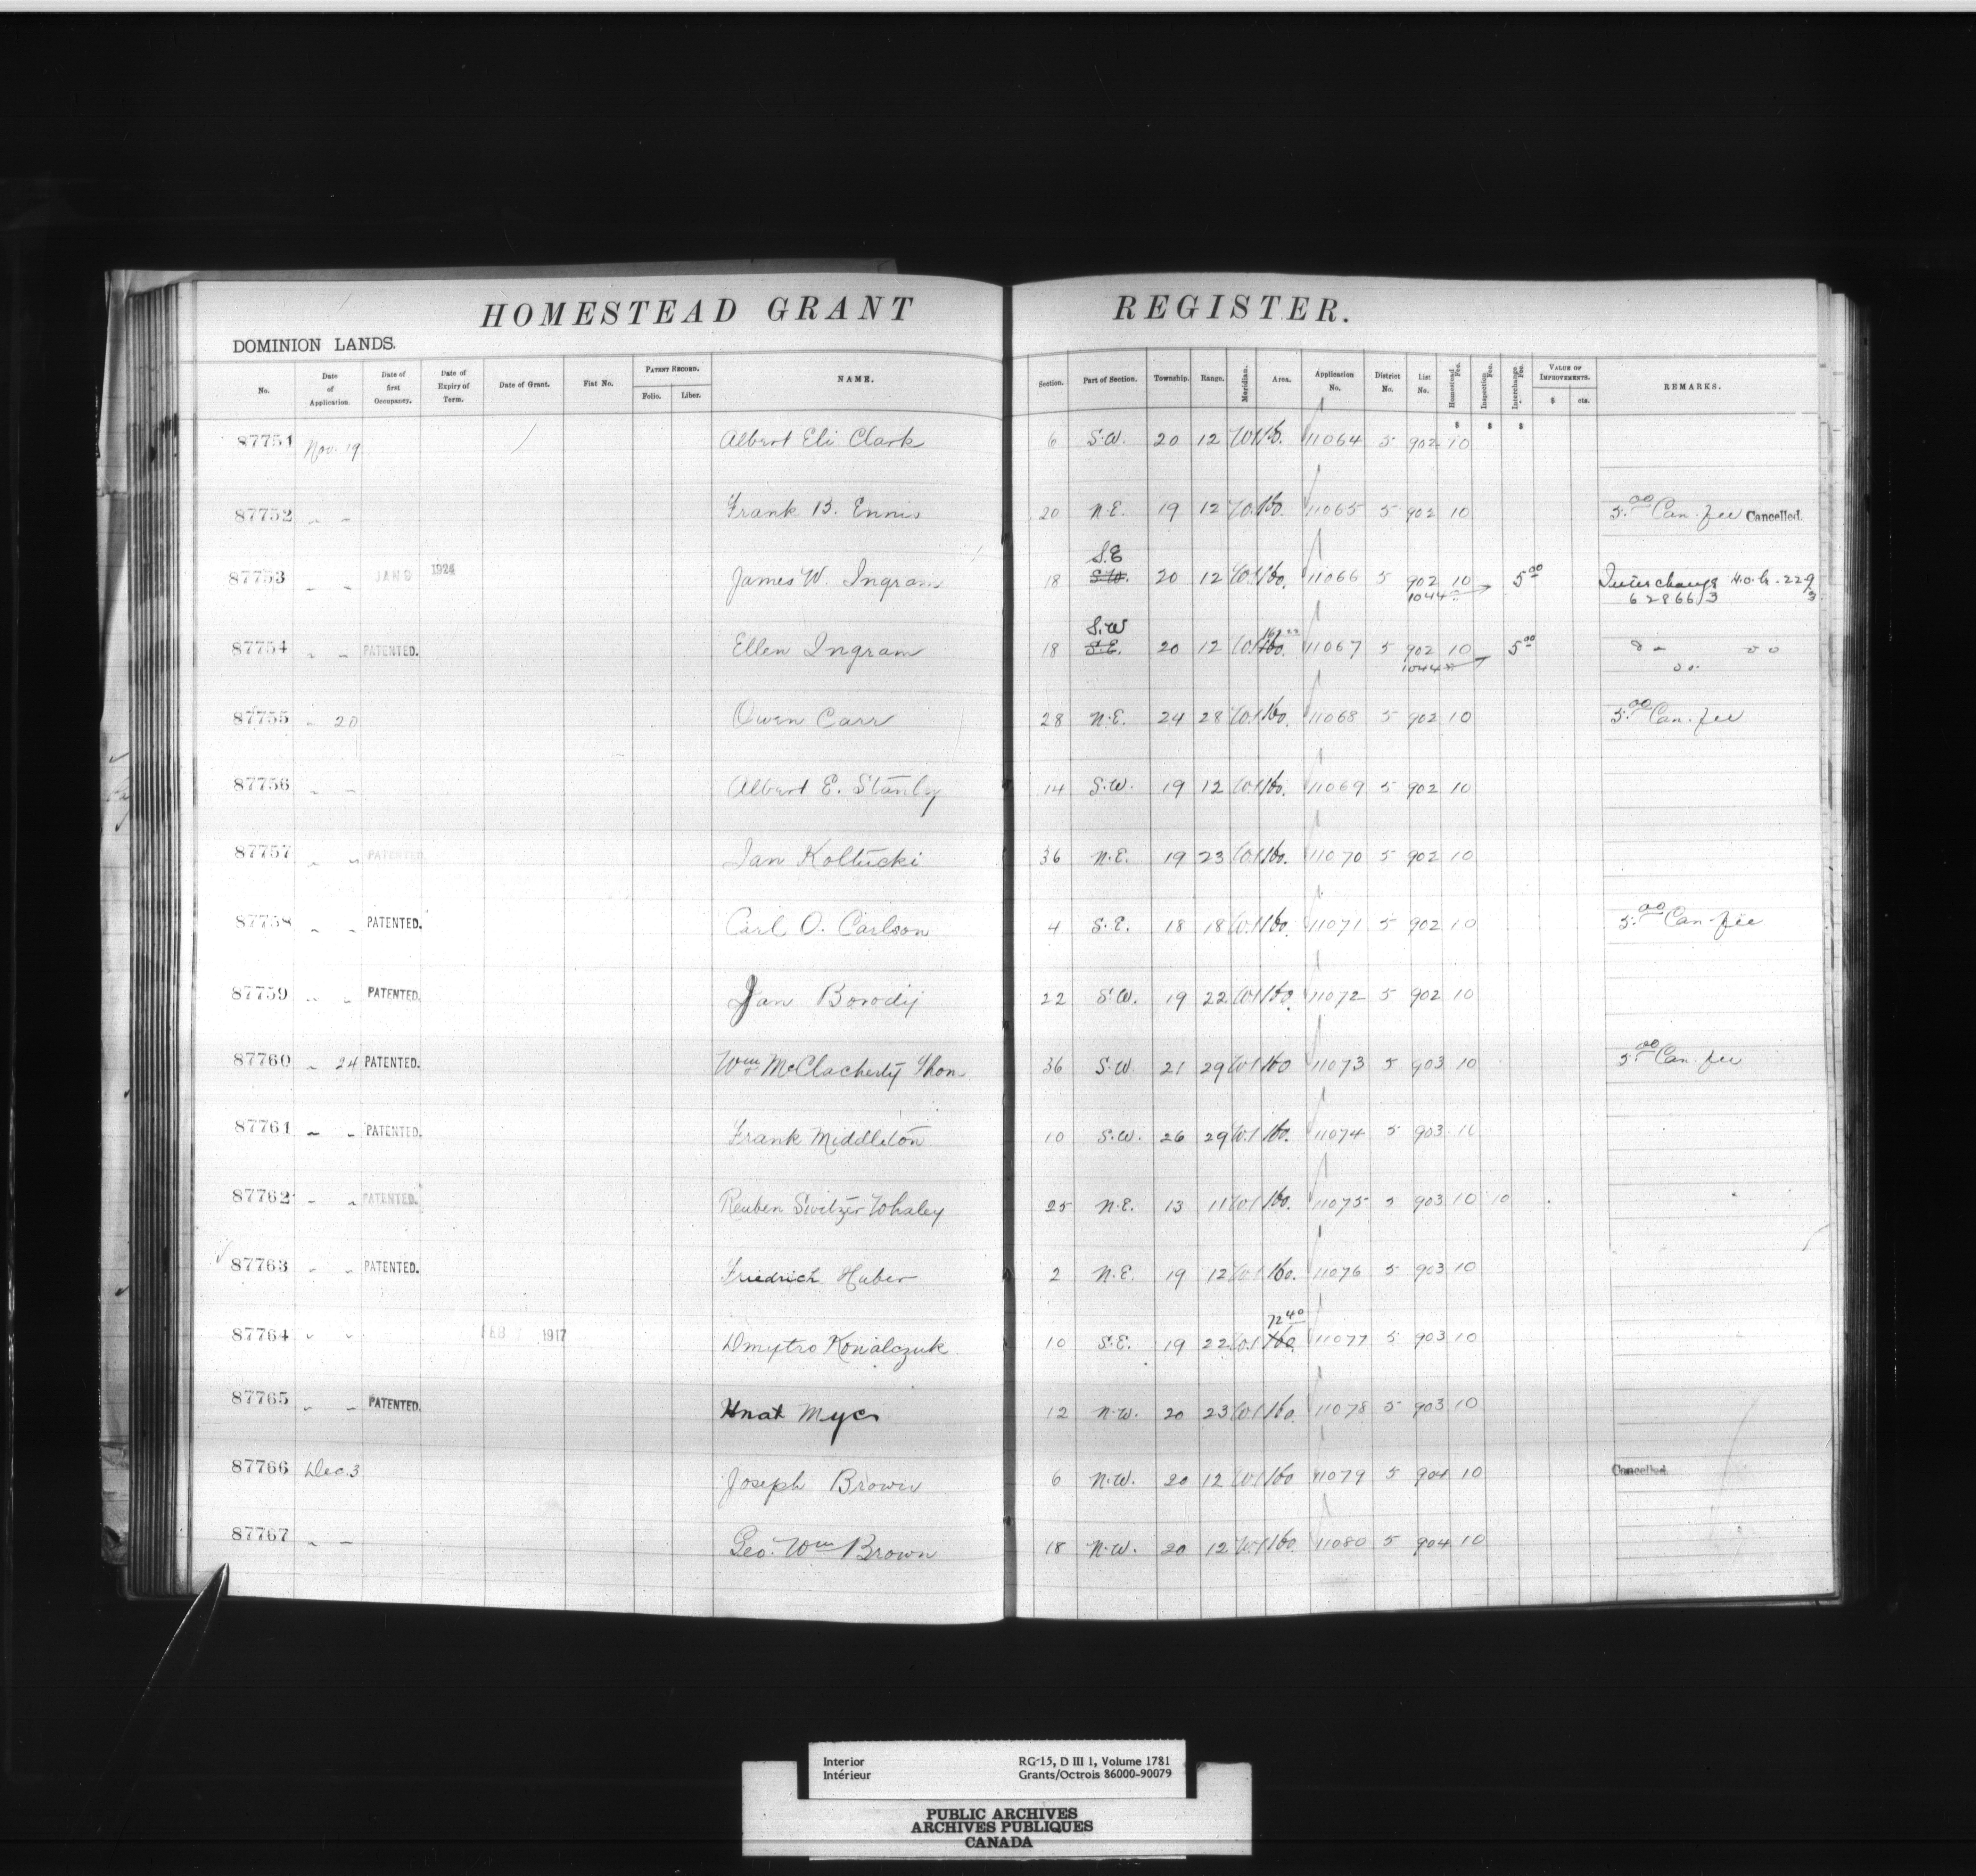 HOMESTEAD GRANT REGISTER.
DOMINION LANDS.
No. Date of Application. Date of first Occupancy. Date of Expiry of Term. Date of Grant. Fiat No. PATENT RECORD. Folio. Liber. NAME. Section. Part of Section. Township. Range. Meridian. Area. Application No. District No. List No. Homestead Fee. Inspection Fee. Interchange Fee. VALUE OF IMPROVEMENTS. $ cts. REMARKS.
$ $ $
87751 Nov. 19 Albert Eli Clark 6 S.W. 20 12 W.1 160. 11064 5 902 10
87752 " " Frank B. Ennis 20 N.E. 19 12 W.1 160. 11065 5 902 10 5.00 Can. fee Cancelled.
S.E
87753 " " JAN 9 1924 James W. Ingram 18 S.W. 20 12 W.1 160. 11066 5 902 10 5 00 Interchange H.O.G. 229
1044 628663 3
S.W 160
87754 " " PATENTED. Ellen Ingram 18 S.E. 20 12 W.1 160. 11067 5 902 10 5 00 do do
1044 do
87755 " 20 Owen Carr 28 N.E. 24 28 W.1 160. 11068 5 902 10 5.00 Can. fee
87756 " " Albert E. Stanley 14 S.W. 19 12 W.1 160. 11069 5 902 10
87757 " " PATENTED Jan Koltucki 36 N.E. 19 23 W.1 160. 11070 5 902 10
87758 " " PATENTED. Carl O. Carlson 4 S.E. 18 18 W.1 160. 11071 5 902 10 5.00 Can. fee
87759 " " PATENTED. Jan Borodij 22 S.W. 19 22 W.1 160. 11072 5 902 10
87760 " 24 PATENTED. Wm McClacherty Thom 36 S.W. 21 29 W.1 160 11073 5 903 10 5.00 Can. fee
87761 " " PATENTED. Frank Middleton 10 S.W. 26 29 W.1 160. 11074 5 903 10
87762 " " PATENTED. Reuben Switzer Whaley 25 N.E. 13 11 W.1 160. 11075 5 903 10 10
87763 " " PATENTED. Friedrich Huber 2 N.E. 19 12 W.1 160. 11076 5 903 10
72 40
87764 " " FEB 1917 Dmytro Kowalczuk 10 S.E. 19 22 W.1 160 11077 5 903 10
87765 " " PATENTED. Hnat Myc 12 N.W. 20 23 W.1 160. 11078 5 903 10
87766 Dec. 3 Joseph Brown 6 N.W. 20 12 W.1 160 11079 5 904 10 Cancelled.
87767 " " Geo. Wm Brown 18 N.W. 20 12 W.1 160. 11080 5 904 10
Interior RG-15, D III 1, Volume 1781
Intérieur Grants/Octrois 86000-90079
PUBLIC ARCHIVES
ARCHIVES PUBLIQUES
CANADA